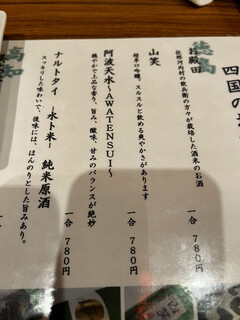 四国の
徳島
杜殿田
佐那河内村の飲兵衛の方々が栽培した酒米のお酒
一合 780円
山笑
超辛口吟醸、スルスルと飲める爽やかさがあります
一合 780円
阿波天水～AWATENSUI～
穏やかで上品な香り、旨み、酸味、甘みのバランスが絶妙
一合 780円
ナルトタイ ―水ト米― 純米原酒
スッキリした味わいで、後味には、ほんのりとした旨みあり。
一合 780円
高知